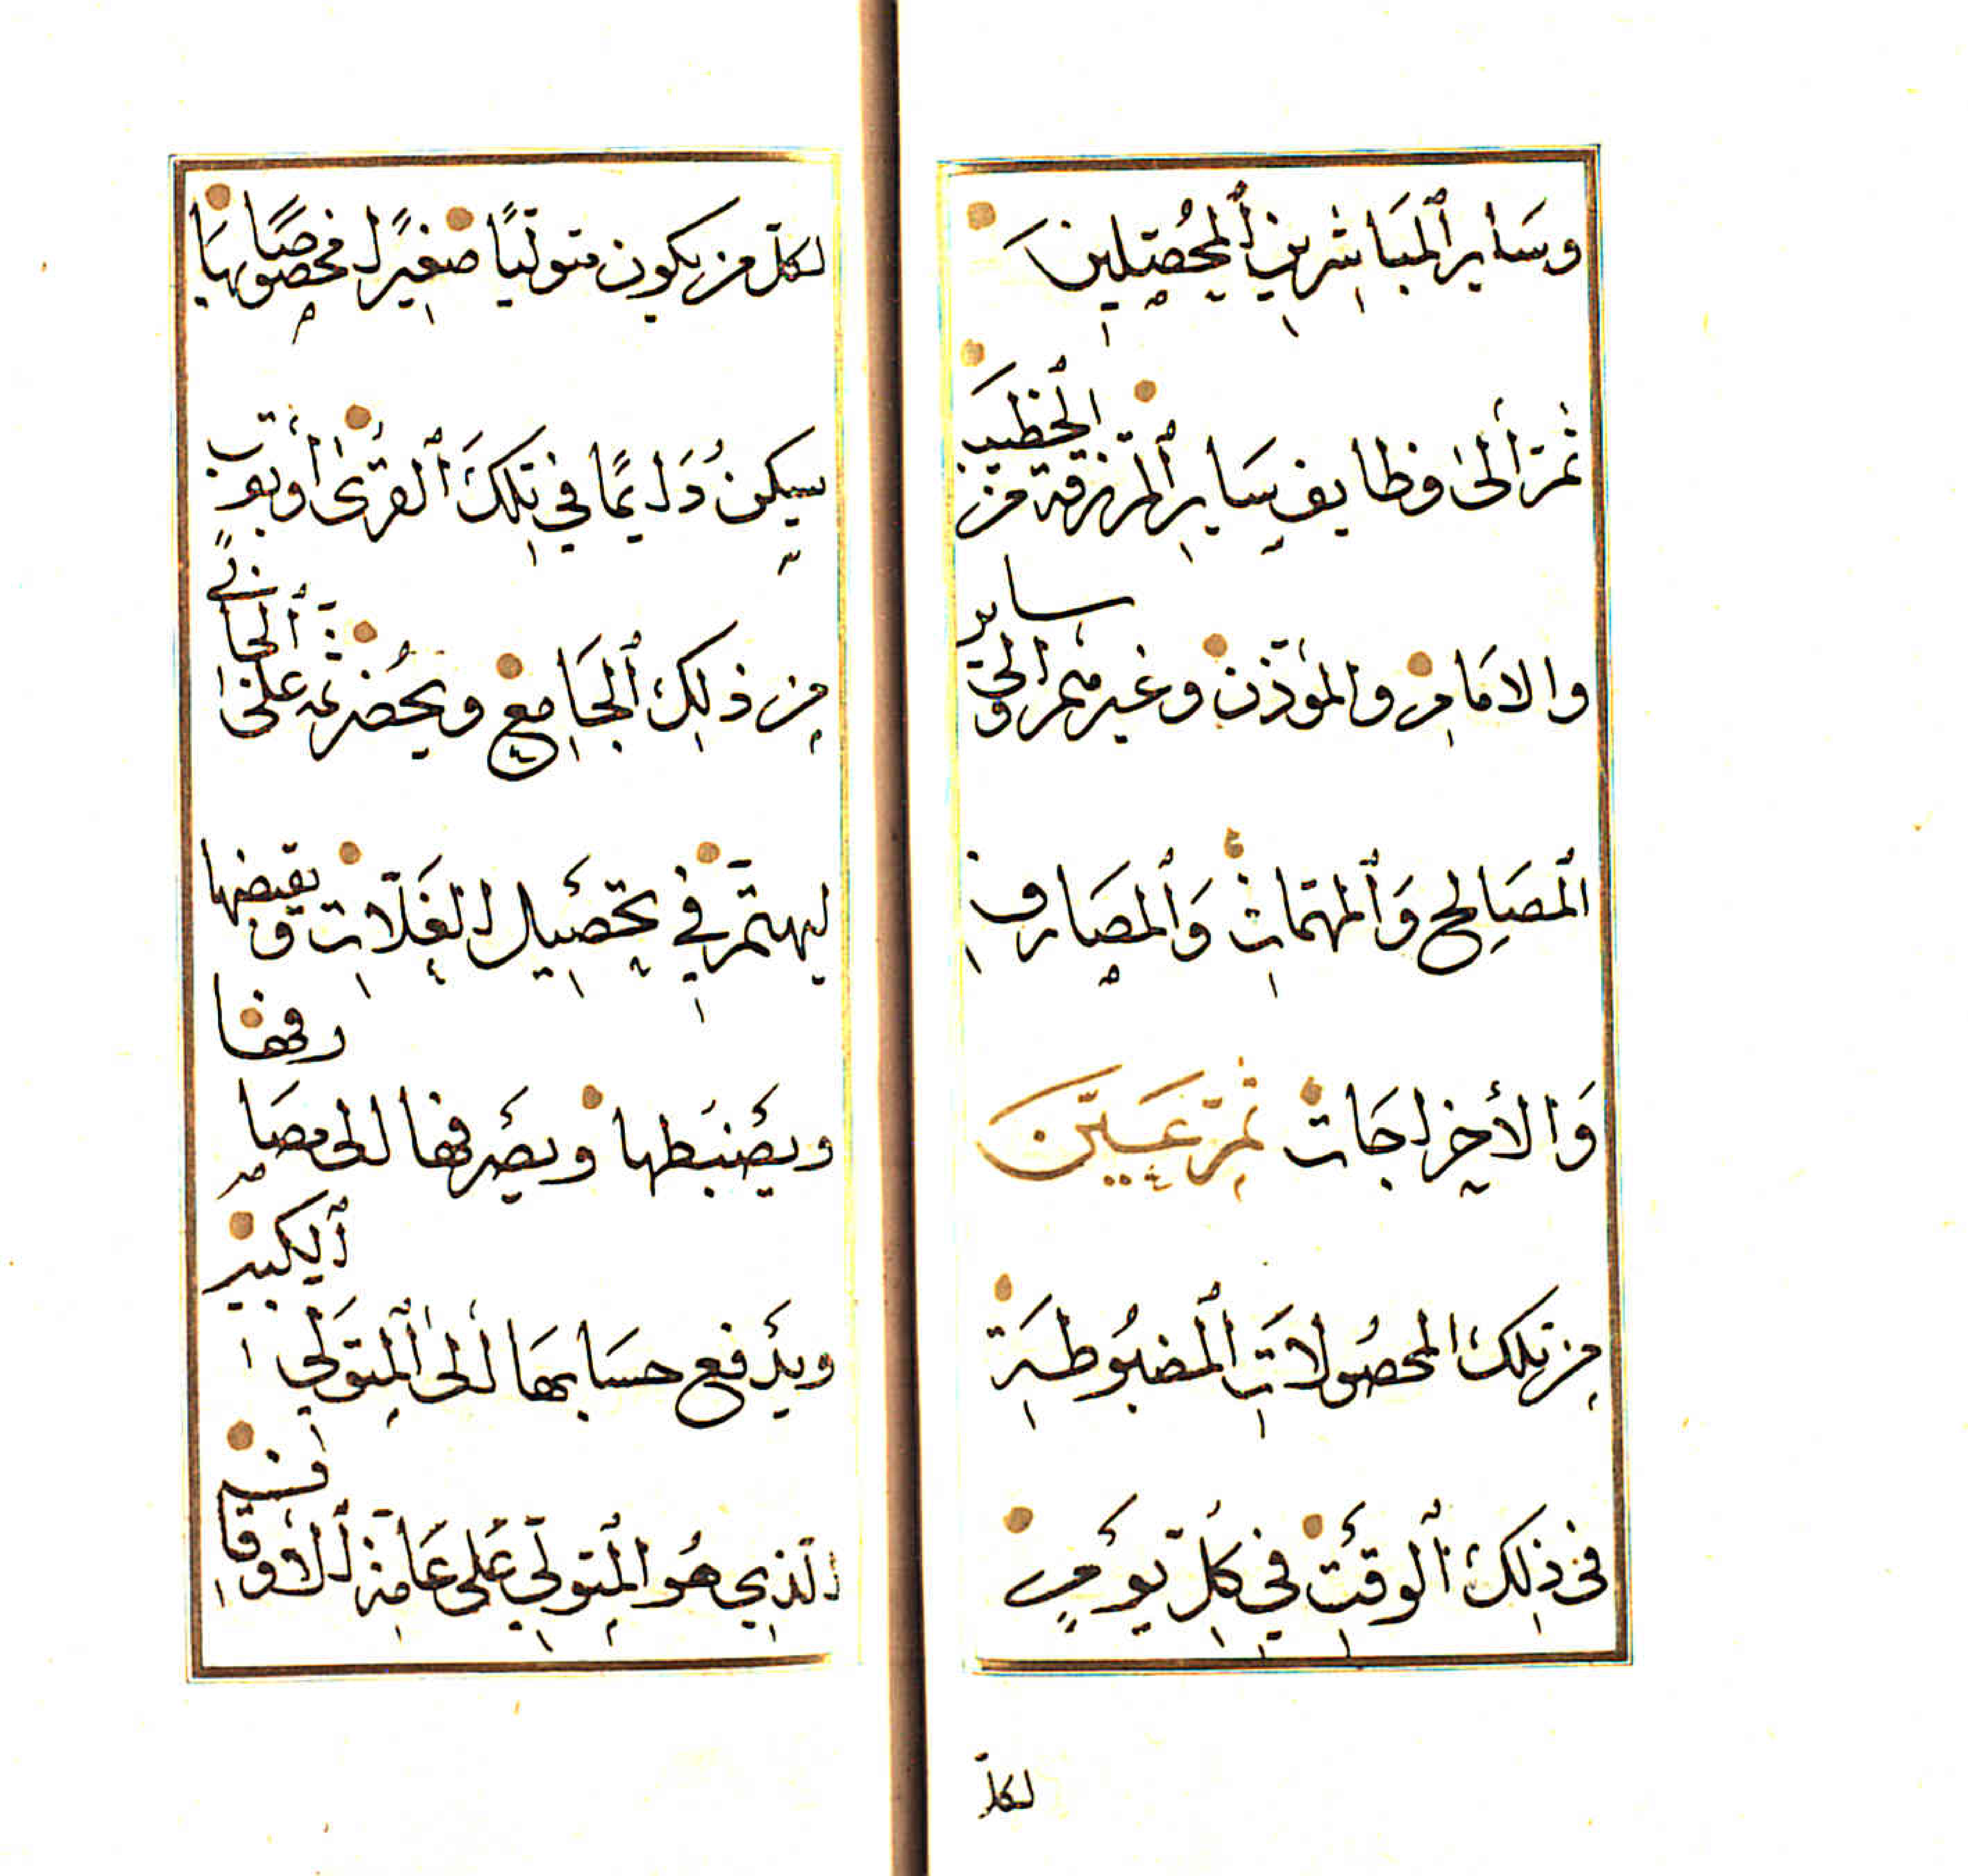 وَسَايرِ ٱلمبَاشِرِينِ ٱلمُحصِّلِينَ
ثمّ إلىٰ وظايفِ سَايرِ ٱلمرتزقة من الخطيبِ
والامَامِ والمؤذّن وغيرهم وإلى ساير
المصَالح وَٱلمهمّاتِ وَٱلمصَارفِ
وَالأخراجَات ثمّ عَيّنَ
مِن تلكَ المحصُولاتِ ٱلمضبُوطَةِ
في ذلِكَ ٱلوقْتِ في كلِّ يَوْمٍ
لكلّ
لكلّ من يكون متوليًا صغيرا مخصوصًا بها
يسكنُ دَايمًا في تِلكَ ٱلقُرىٰ أو بقربِ
مِن ذلِكَ ٱلجَامعِ ويحُضر ثمه على ٱلجا نى
ليهتمّ في تحْصِيل الغَلّات وقبضها
ويضْبَطها ويصْرفها الى مصَا رفها
ويدْفع حسَابهَا إلىٰ ٱلمتوَلِّي ٱلكبير
الّذِي هُو المتولِّي عَلى عَامّةِ ٱلأوقا ف